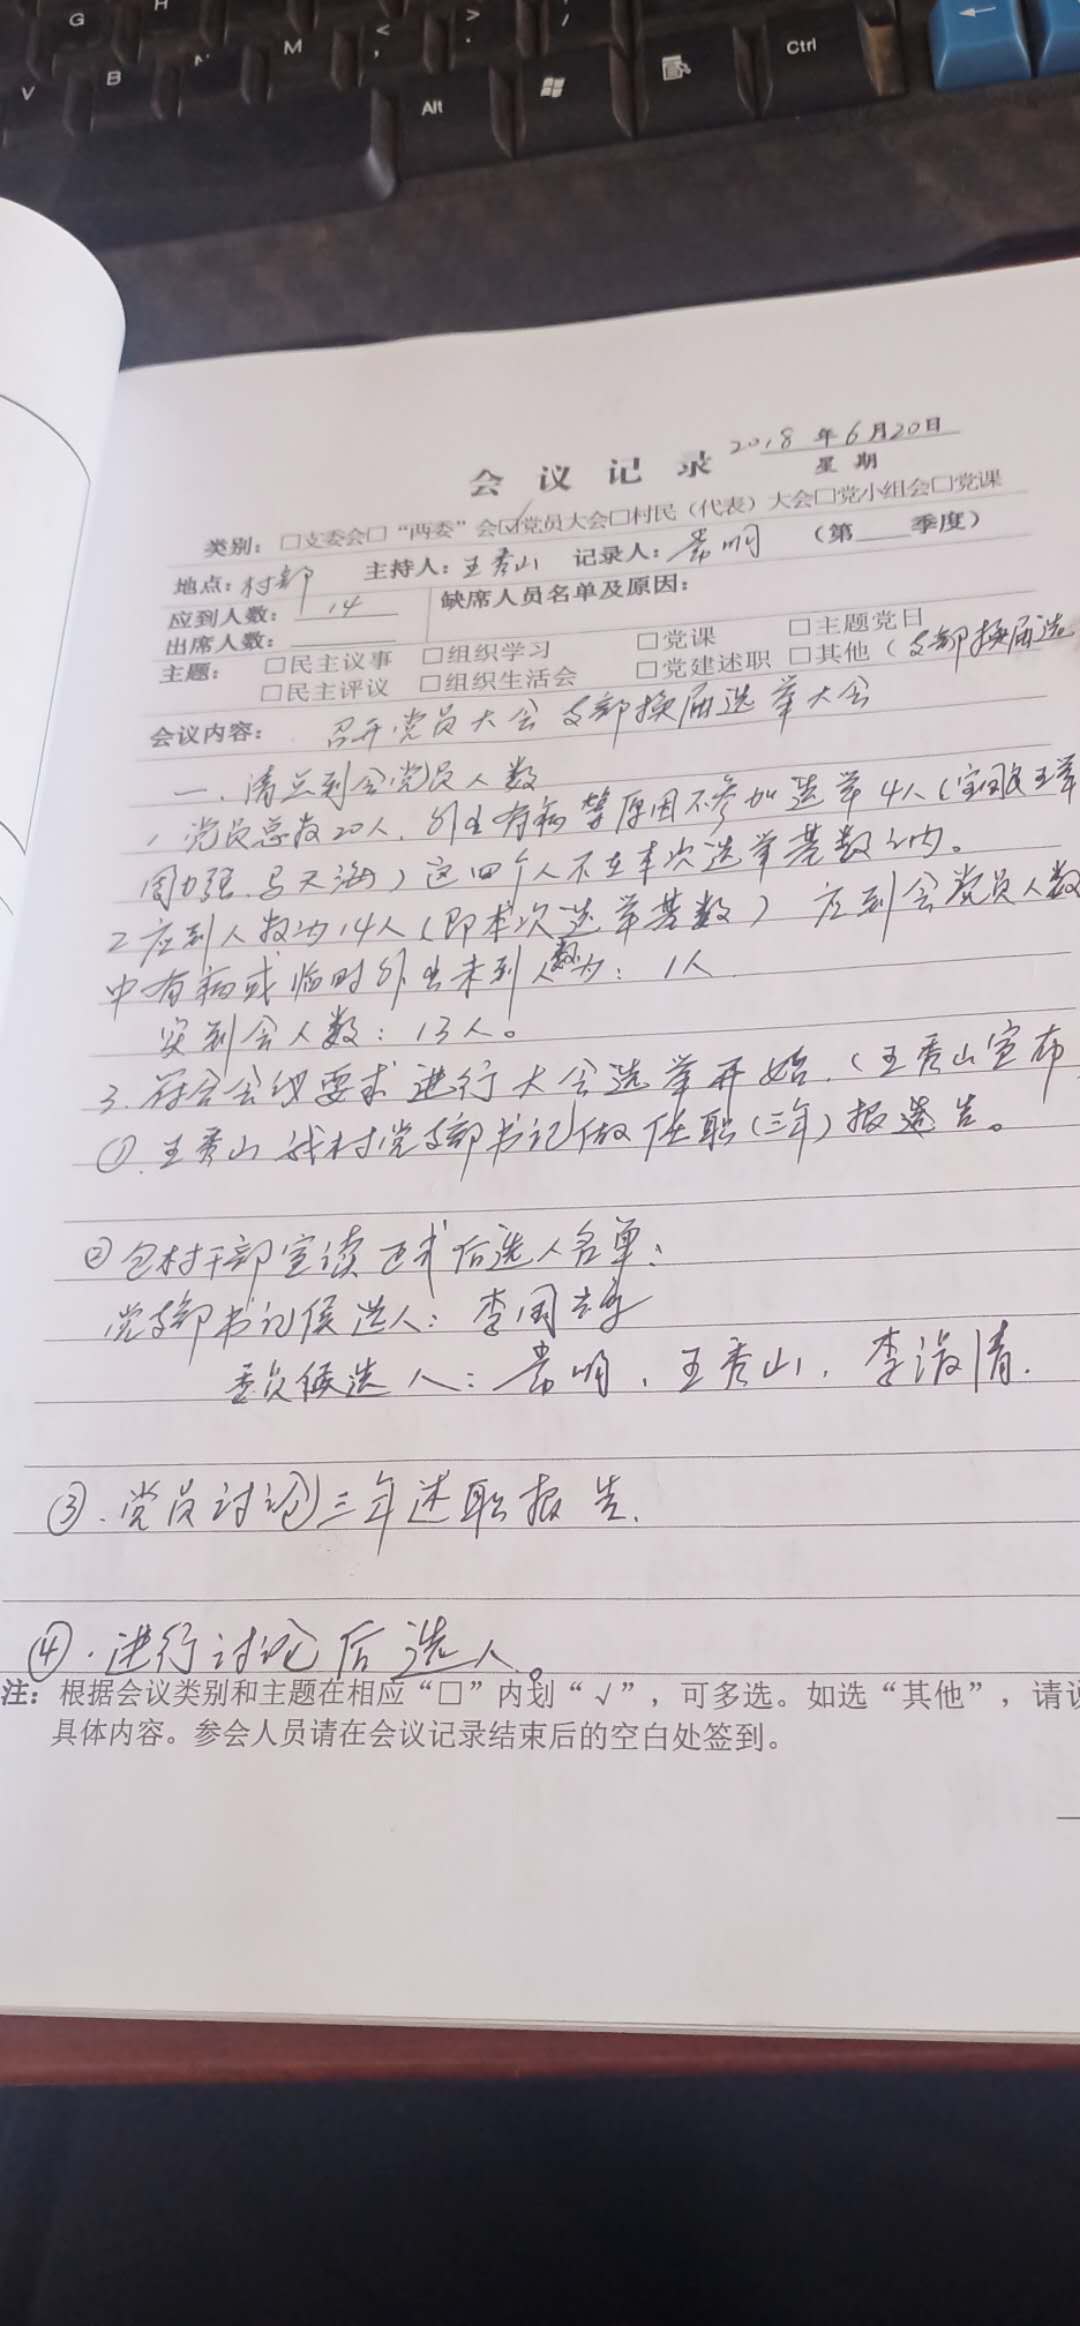 G
H
V
B
N
M
<
,
>
.
/
Alt
Ctrl
2018年6月20日
会议记录
星期
类别：□支委会□“两委”会☑党员大会□村民（代表）大会□党小组会□党课
地点：村部 主持人：王秀山 记录人：常明 （第 季度）
应到人数：14 缺席人员名单及原因：
出席人数：
主题：□民主议事 □组织学习 □党课 □主题党日
□民主评议 □组织生活会 □党建述职 □其他（支部换届选
会议内容：召开党员大会 支部换届选举大会
一、清点到会党员人数
1 党员总数20人，外出有病等原因不参加选举4人（
周力强、马天海）这四个人不在本次选举基数之内。
2 应到人数为14人（即本次选举基数）应到会党员人数
中有病或临时外出未到人数为：1人
实到会人数：13人。
3. 符合会议要求 进行大会选举开始.（王秀山宣布
①.王秀山 我村党支部书记做任职（三年）报告。
②包村干部宣读正式后选人名单：
党支部书记候选人：李国
委员候选人：常明、王秀山、李淑清.
③.党员讨论三年述职报告.
④.进行讨论后选人。
注：根据会议类别和主题在相应“□”内划“√”，可多选。如选“其他”，请
具体内容。参会人员请在会议记录结束后的空白处签到。